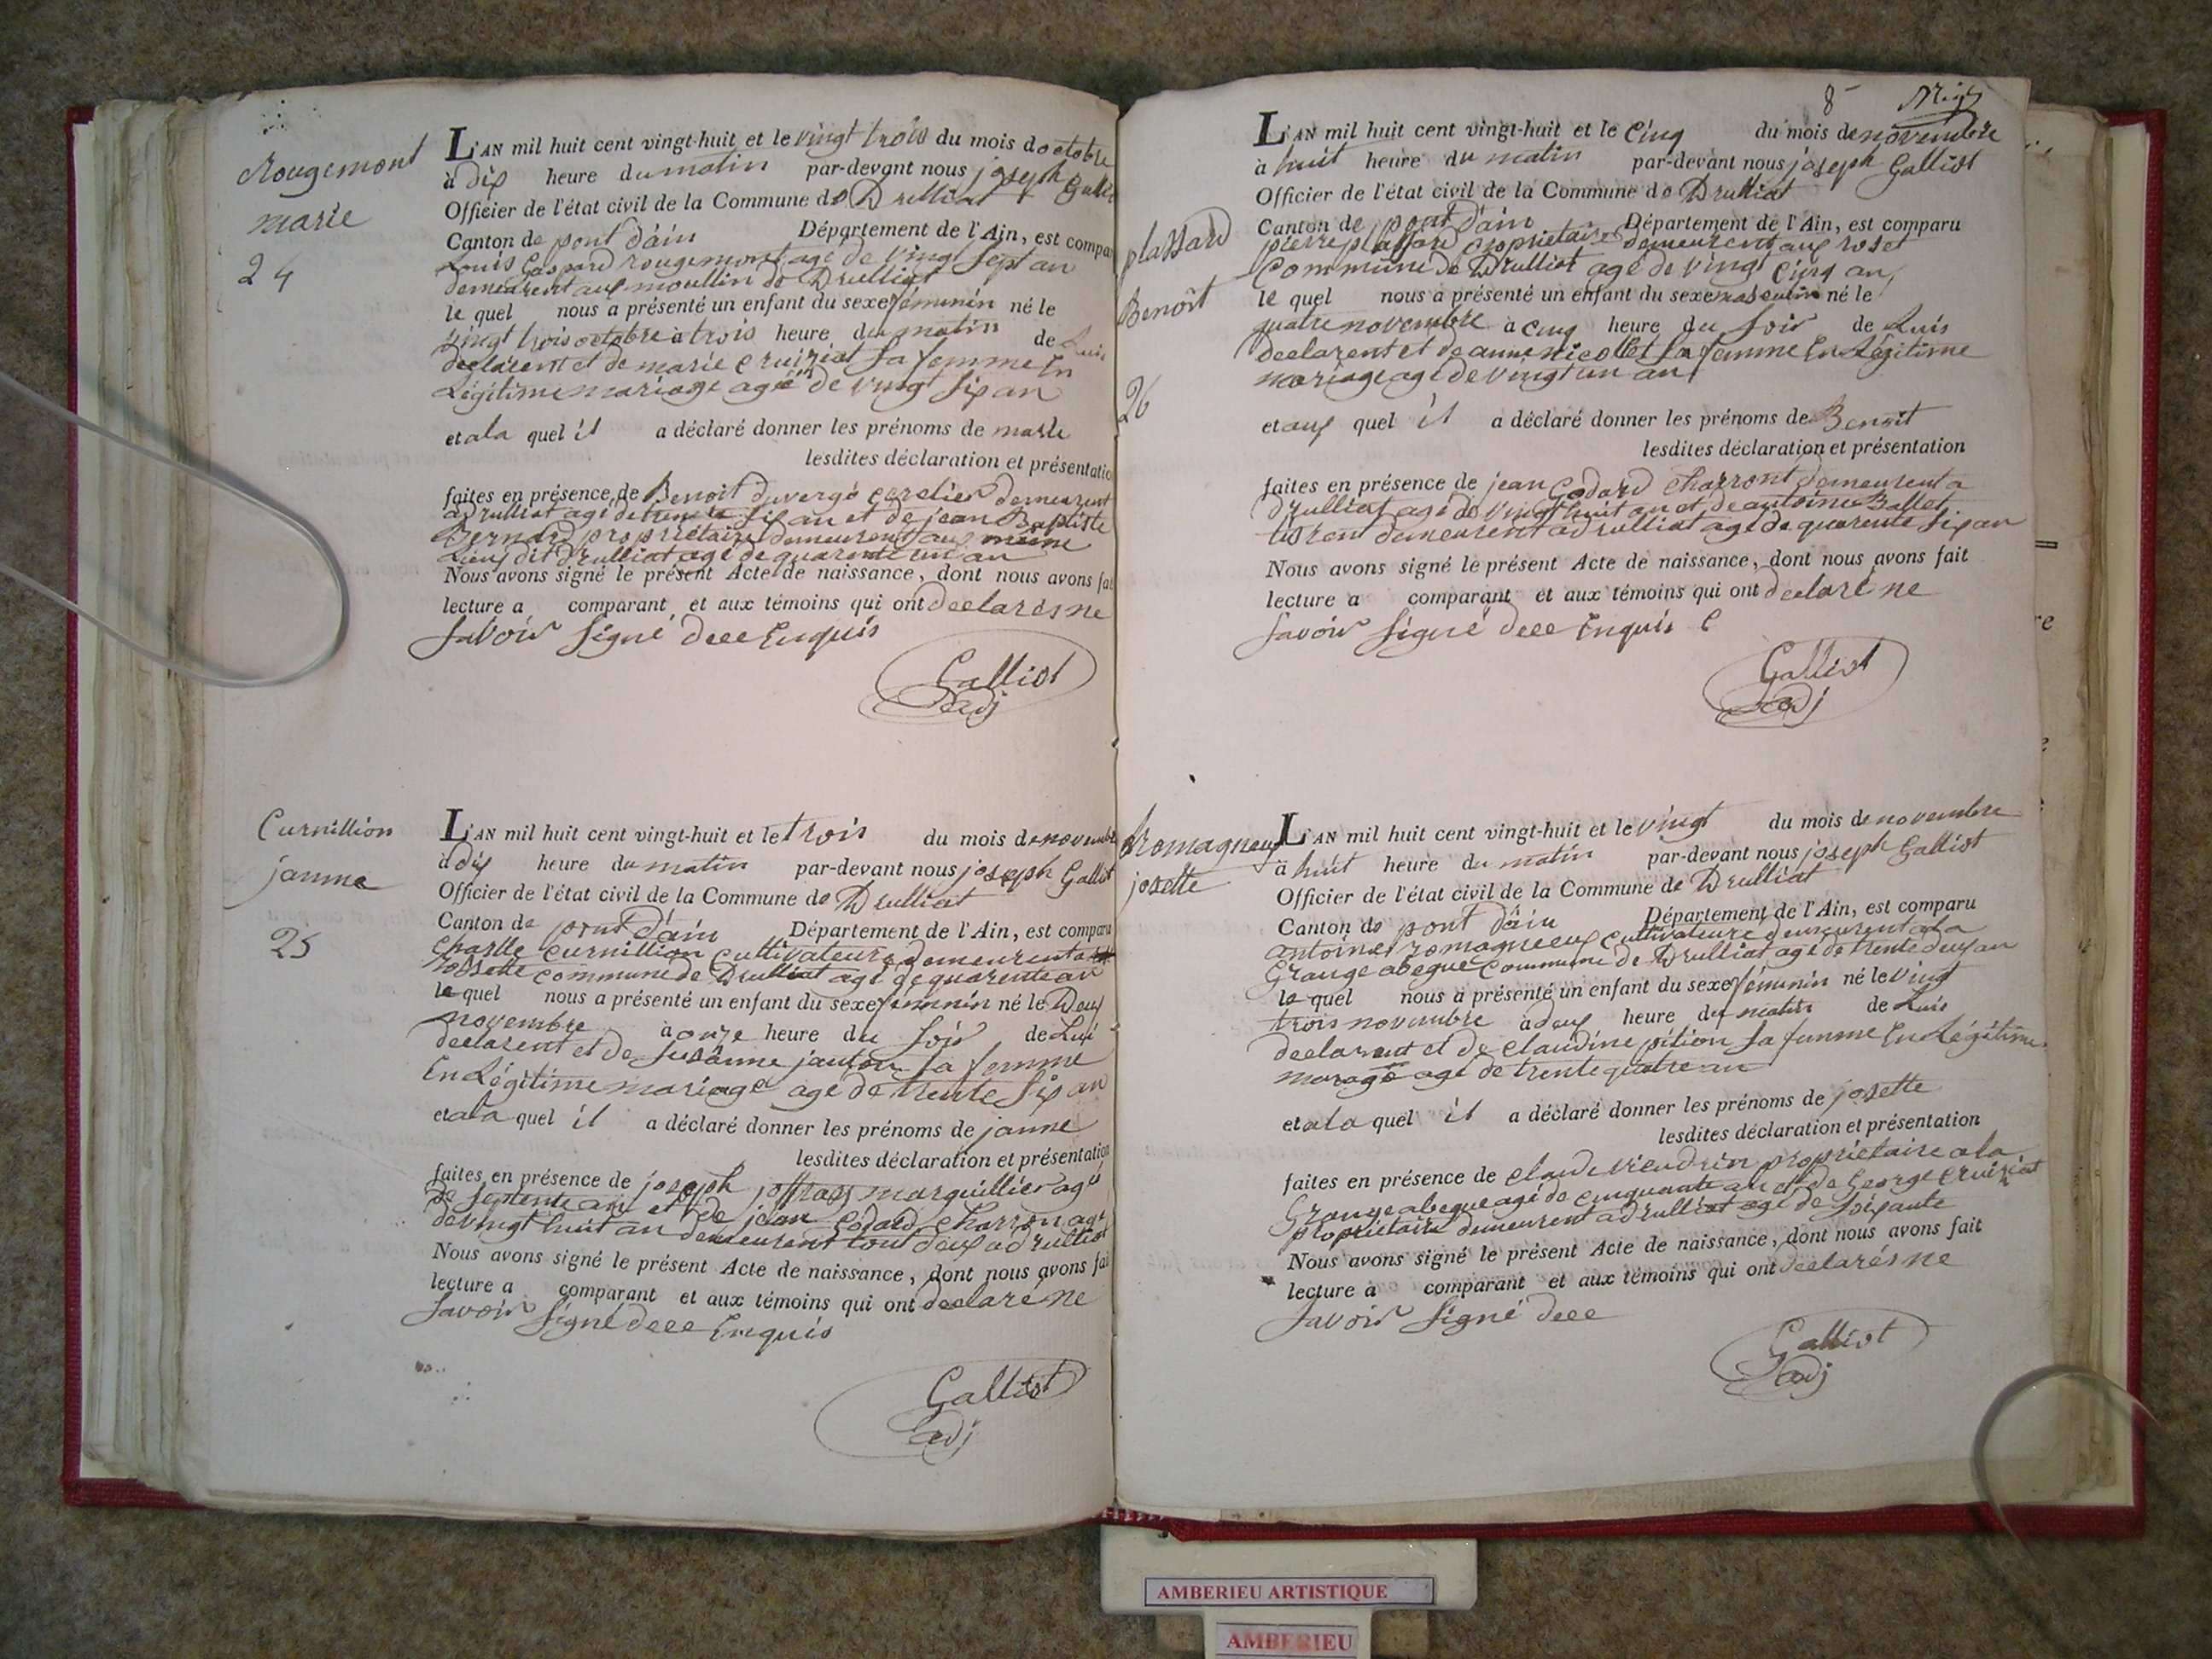 Rougemont
marie
24
L'AN mil huit cent vingt-huit et le vingt trois du mois do octobre
à dix heure du matin par-devant nous joseph Galli
Officier de l'état civil de la Commune do Drulliat
Canton de pont d'ain Département de l'Ain, est compar
Louis Gaspard rougemont agé de vingt sept an
demeurent aux moullin de Drulliat
le quel nous a présenté un enfant du sexe féminin né le
vingt trois octobre à trois heure du matin de Luis
declarent et de marie cruiziat sa femme En
Légitime mariage agé de vingt six an
et ala quel il a déclaré donner les prénoms de marie
lesdites déclaration et présentatio
faites en présence de Benoit duvergé demeurent
a drulliat agé de trente six an et de jean Baptiste
Bernard propriétaire demeurent au meme
Lieux dit drulliat agé de quarente un an
Nous avons signé le présent Acte de naissance, dont nous avons fai
lecture a comparant et aux témoins qui ont declarés ne
savoir signé deee Enquis
Galliot
adj
Curnillion
janne
25
L'AN mil huit cent vingt-huit et le trois du mois de novembre
à dix heure du matin par-devant nous joseph Galliot
Officier de l'état civil de la Commune do Drulliat
Canton de pont d'ain Département de l'Ain, est comparu
charlle curnillion cultivateure demeurent a
rossette commune de Drulliat agé de quarente an
le quel nous a présenté un enfant du sexe féminin né le Deux
novembre à onze heure du soir de Lui
declarent et de susanne janton sa femme
En Légitime mariage agé de trente six an
et ala quel il a déclaré donner les prénoms de janne
lesdites déclaration et présentation
faites en présence de joseph joffray marguillier agé
de septente an et de jean Godard charron agé
de vingt huit an demeurent tout deux a drulliat
Nous avons signé le présent Acte de naissance, dont nous avons fai
lecture a comparant et aux témoins qui ont declaré ne
savoir signé deee Enquis
Galliot
adj
8
plassard
Benoît
26
L'AN mil huit cent vingt-huit et le cinq du mois de novembre
à huit heure du matin par-devant nous joseph Galliot
Officier de l'état civil de la Commune do Drulliat
Canton de pont d'ain Département de l'Ain, est comparu
pierre plassard propriétaire demeurent aux roset
Commune de Drulliat agé de vingt cinq an
le quel nous a présenté un enfant du sexe masculin né le
quatre novembre à cinq heure du soir de Luis
declarent et de anne nicollet sa femme En Légitime
mariage agé de vingt un an
et aux quel il a déclaré donner les prénoms de Benoit
lesdites déclaration et présentation
faites en présence de jean Godard charront demeurent a
drulliat agé de vingt huit an et de antoine Ballet
tisrent demeurent a drulliat agé de quarente six an
Nous avons signé le présent Acte de naissance, dont nous avons fait
lecture a comparant et aux témoins qui ont declaré ne
savoir signé deee Enquis
Galliot
adj
Romagneux
josette
L'AN mil huit cent vingt-huit et le vingt du mois de novembre
à huit heure du matin par-devant nous joseph Galliot
Officier de l'état civil de la Commune de Drulliat
Canton do pont d'ain Département de l'Ain, est comparu
antoine romagneux cultivateure demeurent a la
Grange abegue Commune de Drulliat agé de trente deux an
le quel nous a présenté un enfant du sexe féminin né le vingt
trois novembre à deux heure du matin de Luis
declarent et de claudine pition sa femme En Légitime
marage agé de trente quatre an
et ala quel il a déclaré donner les prénoms de josette
lesdites déclaration et présentation
faites en présence de claude vieudrin propriétaire a la
Grange abegue agé de cinquante an et de George cruiziat
propriétaire demeurent a drulliat agé de soixante
Nous avons signé le présent Acte de naissance, dont nous avons fait
lecture à comparant et aux témoins qui ont declarés ne
savoir signé deee
Galliot
adj
re
AMBERIEU ARTISTIQUE
AMBERIEU